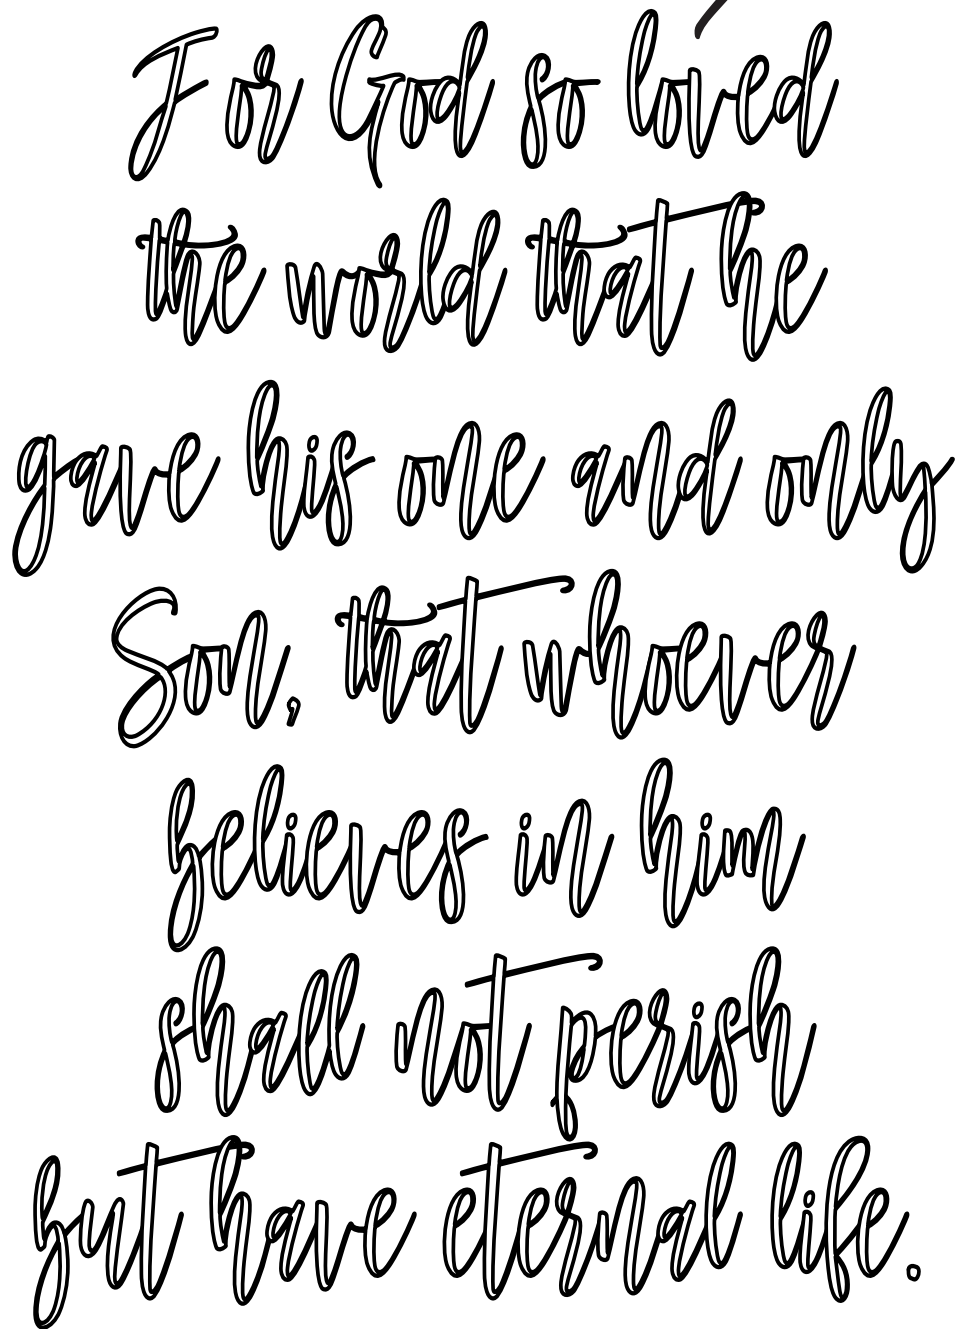 For God so loved
the world that he
gave his one and only
Son, that whoever
believes in him
shall not perish
but have eternal life.